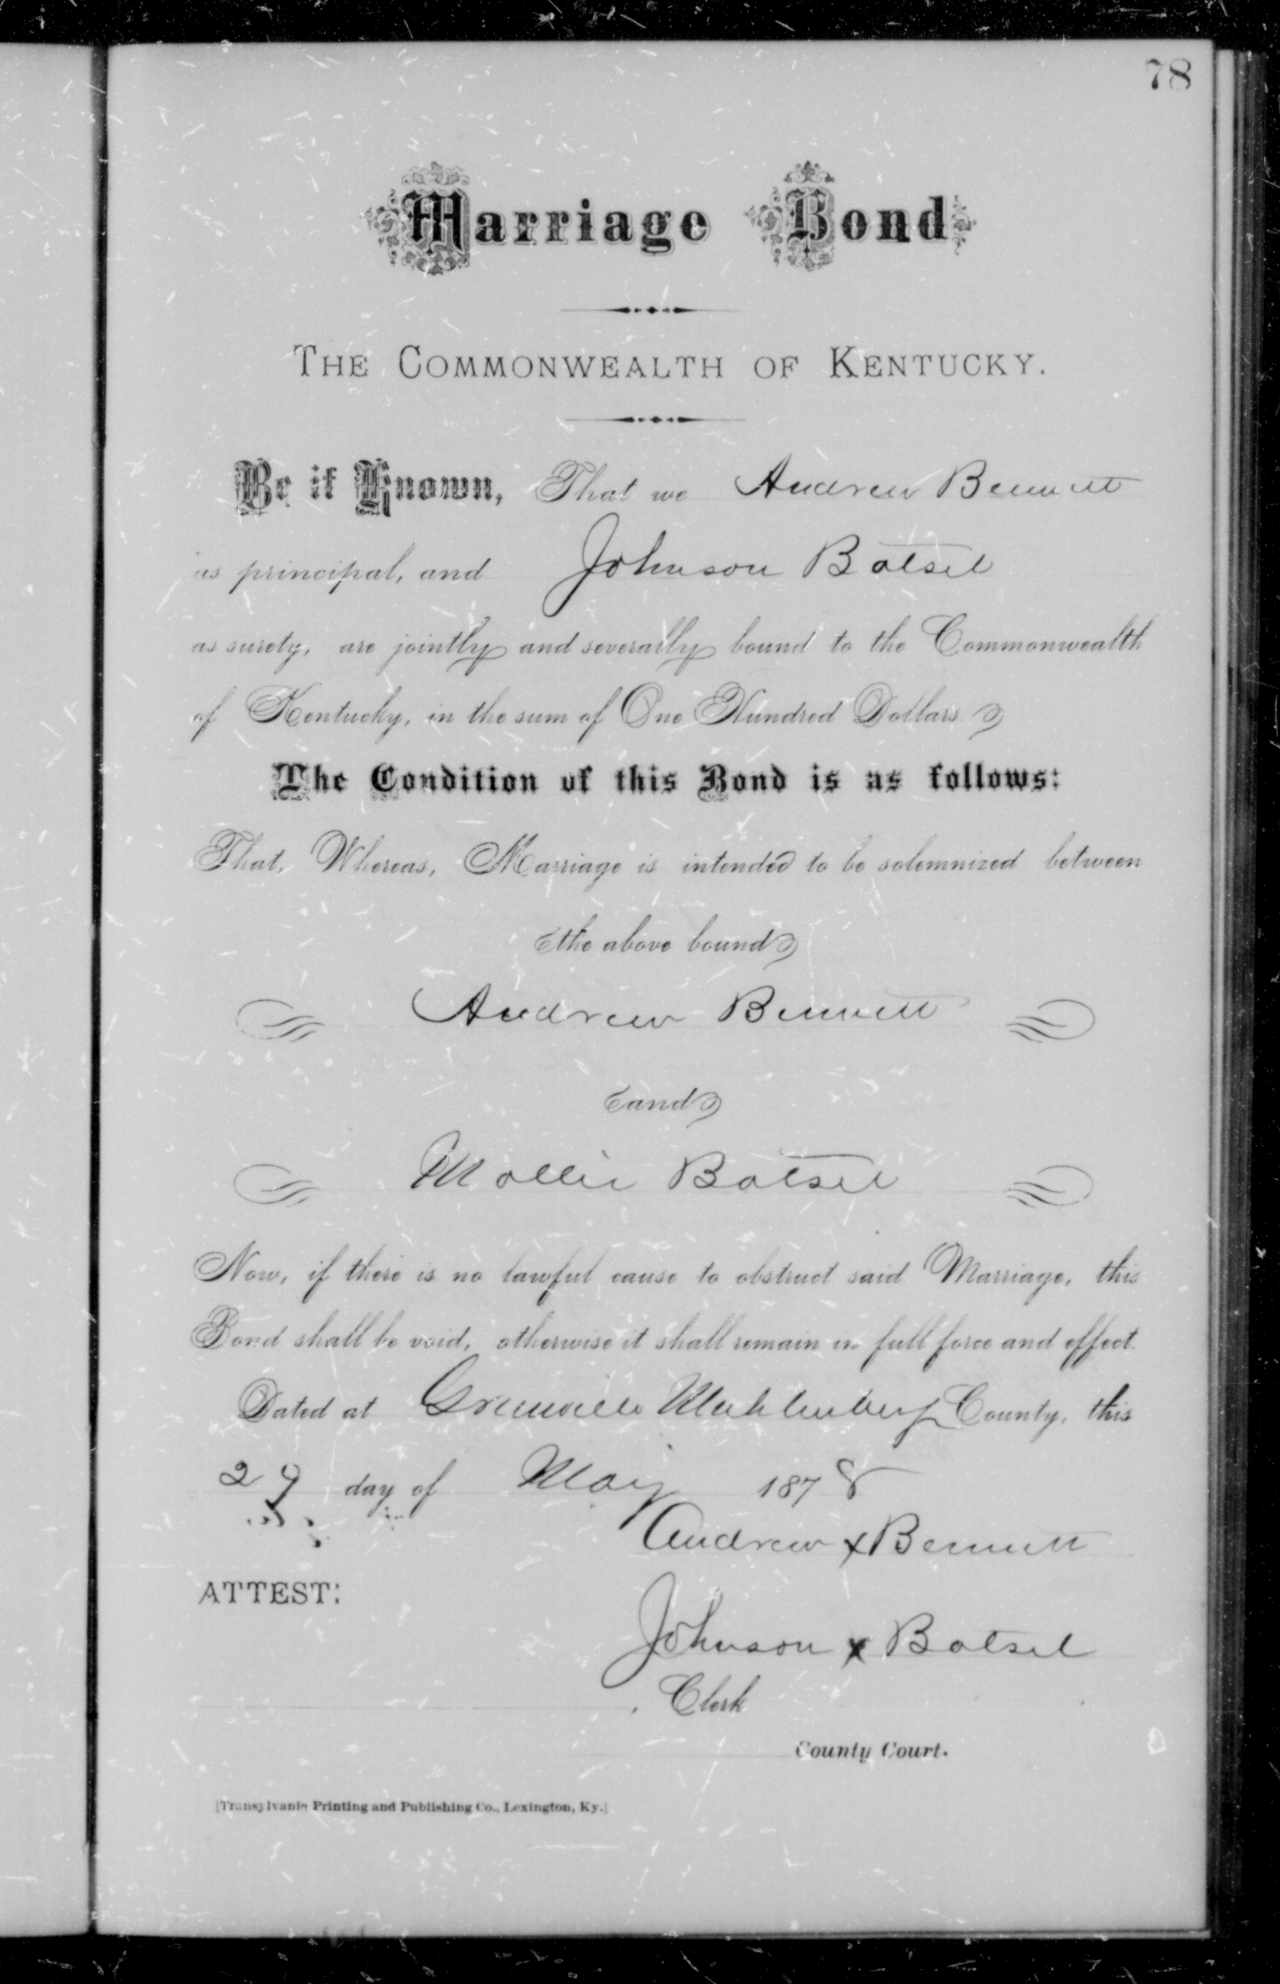 78
Marriage Bond
THE COMMONWEALTH OF KENTUCKY.
Be it Known, That we Andrew Bennett
as principal, and Johnson Botsel
as surety, are jointly and severally bound to the Commonwealth
of Kentucky, in the sum of One Hundred Dollars.
The Condition of this Bond is as follows:
That, Whereas, Marriage is intended to be solemnized between
the above bound
Andrew Bennett
and
Mollie Botsel
Now, if there is no lawful cause to obstruct said Marriage, this
Bond shall be void, otherwise it shall remain in full force and effect.
Dated at Greenville Muhlenberg County, this
29 day of May 1878
Andrew x Bennett
ATTEST:
Johnson x Botsel
, Clerk
County Court.
[Transylvania Printing and Publishing Co., Lexington, Ky.]